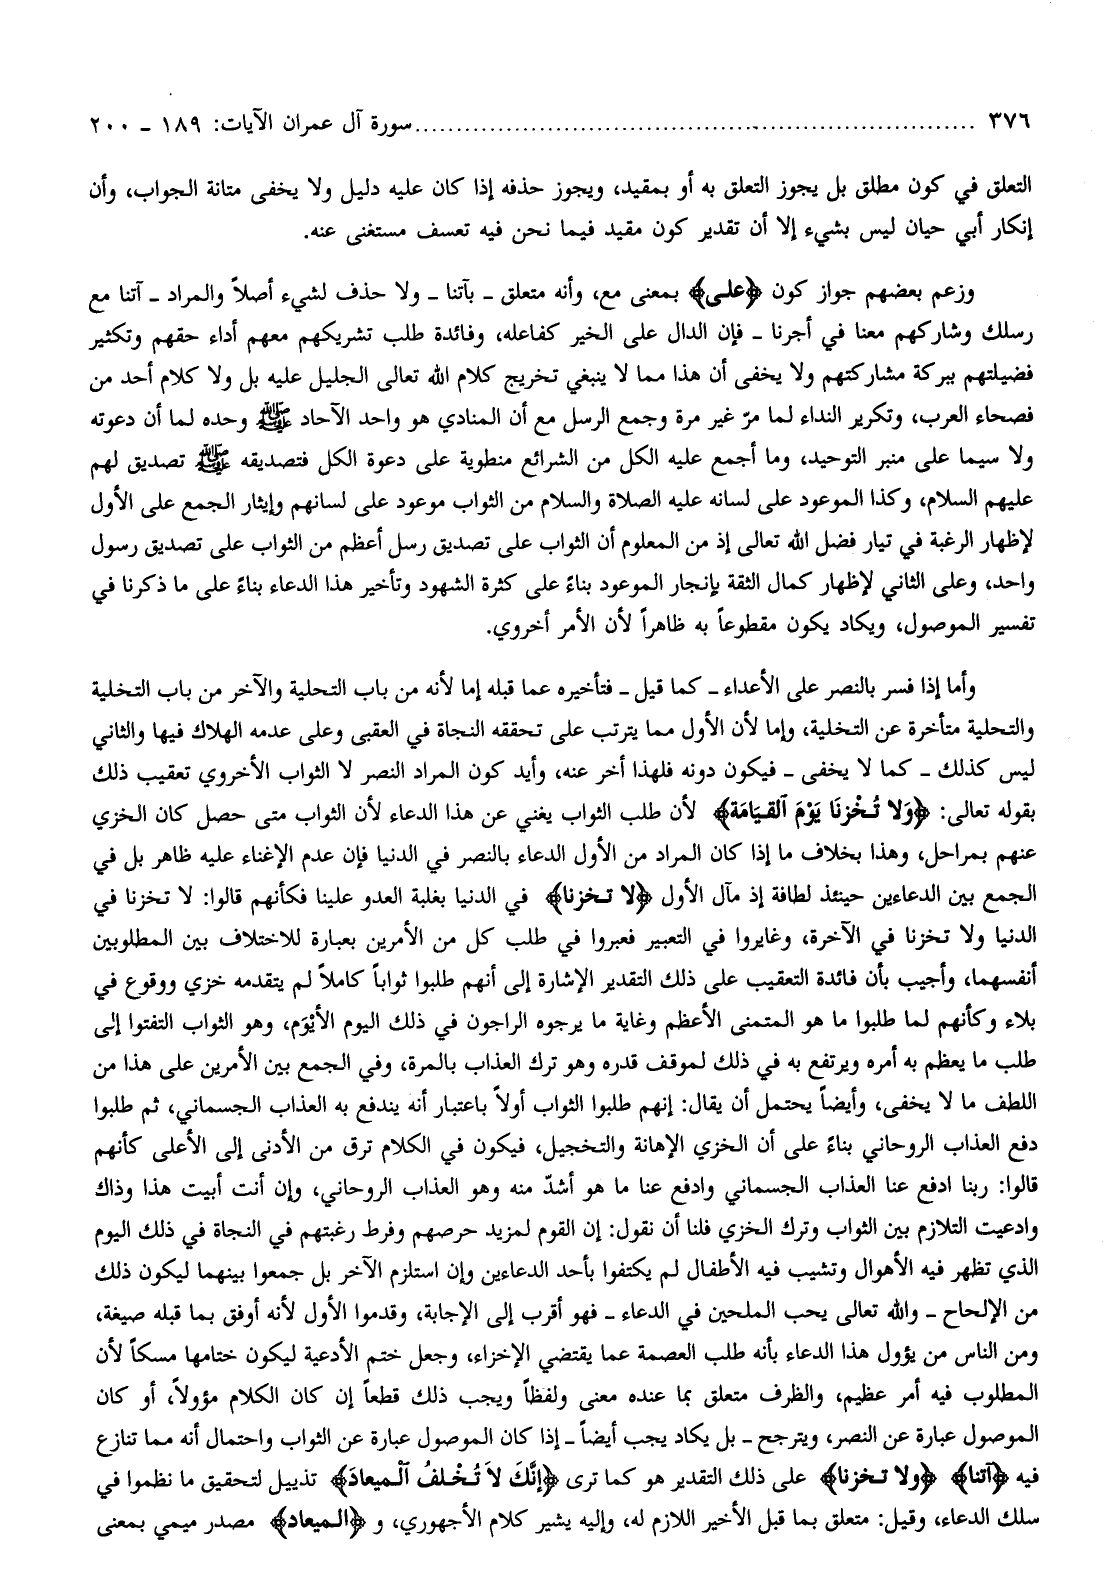 ٣٧٦ ........................................................ سورة آل عمران الآيات: ١٨٩ ـ ٢٠٠
التعلق في كون مطلق بل يجوز التعلق به أو بمقيد، ويجوز حذفه إذا كان عليه دليل ولا يخفى متانة الجواب، وأن
إنكار أبي حيان ليس بشيء إلا أن تقدير كون مقيد فيما نحن فيه تعسف مستغنى عنه.
وزعم بعضهم جواز كون ﴿على﴾ بمعنى مع، وأنه متعلق ـ بآتنا ـ ولا حذف لشيء أصلاً والمراد ـ آتنا مع
رسلك وشاركهم معنا في أجرنا ـ فإن الدال على الخير كفاعله، وفائدة طلب تشريكهم معهم أداء حقهم وتكثير
فضيلتهم ببركة مشاركتهم ولا يخفى أن هذا مما لا ينبغي تخريج كلام الله تعالى الجليل عليه بل ولا كلام أحد من
فصحاء العرب، وتكرير النداء لما مرّ غير مرة وجمع الرسل مع أن المنادي هو واحد الآحاد ﷺ وحده لما أن دعوته
ولا سيما على منبر التوحيد، وما أجمع عليه الكل من الشرائع منطوية على دعوة الكل فتصديقه ﷺ تصديق لهم
عليهم السلام، وكذا الموعود على لسانه عليه الصلاة والسلام من الثواب موعود على لسانهم وإيثار الجمع على الأول
لإظهار الرغبة في تيار فضل الله تعالى إذ من المعلوم أن الثواب على تصديق رسل أعظم من الثواب على تصديق رسول
واحد، وعلى الثاني لإظهار كمال الثقة بإنجار الموعود بناءً على كثرة الشهود وتأخير هذا الدعاء بناءً على ما ذكرنا في
تفسير الموصول، ويكاد يكون مقطوعاً به ظاهراً لأن الأمر أخروي.
وأما إذا فسر بالنصر على الأعداء ـ كما قيل ـ فتأخيره عما قبله إما لأنه من باب التحلية والآخر من باب التخلية
والتحلية متأخرة عن التخلية، وإما لأن الأول مما يترتب على تحققه النجاة في العقبى وعلى عدمه الهلاك فيها والثاني
ليس كذلك ـ كما لا يخفى ـ فيكون دونه فلهذا أخر عنه، وأيد كون المراد النصر لا الثواب الأخروي تعقيب ذلك
بقوله تعالى: ﴿وَلا تُخْزنَا يَوْمَ ٱلقيَامَة﴾ لأن طلب الثواب يغني عن هذا الدعاء لأن الثواب متى حصل كان الخزي
عنهم بمراحل، وهذا بخلاف ما إذا كان المراد من الأول الدعاء بالنصر في الدنيا فإن عدم الإغناء عليه ظاهر بل في
الجمع بين الدعاءين حينئذ لطافة إذ مآل الأول ﴿لا تخزنا﴾ في الدنيا بغلبة العدو علينا فكأنهم قالوا: لا تخزنا في
الدنيا ولا تخزنا في الآخرة، وغايروا في التعبير فعبروا في طلب كل من الأمرين بعبارة للاختلاف بين المطلوبين
أنفسهما، وأجيب بأن فائدة التعقيب على ذلك التقدير الإشارة إلى أنهم طلبوا ثواباً كاملاً لم يتقدمه خزي ووقوع في
بلاء وكأنهم لما طلبوا ما هو المتمنى الأعظم وغاية ما يرجوه الراجون في ذلك اليوم الأيْوَم، وهو الثواب التفتوا إلى
طلب ما يعظم به أمره ويرتفع به في ذلك لموقف قدره وهو ترك العذاب بالمرة، وفي الجمع بين الأمرين على هذا من
اللطف ما لا يخفى، وأيضاً يحتمل أن يقال: إنهم طلبوا الثواب أولاً باعتبار أنه يندفع به العذاب الجسماني، ثم طلبوا
دفع العذاب الروحاني بناءً على أن الخزي الإهانة والتخجيل، فيكون في الكلام ترق من الأدنى إلى الأعلى كأنهم
قالوا: ربنا ادفع عنا العذاب الجسماني وادفع عنا ما هو أشدّ منه وهو العذاب الروحاني، وإن أنت أبيت هذا وذاك
وادعيت التلازم بين الثواب وترك الخزي فلنا أن نقول: إن القوم لمزيد حرصهم وفرط رغبتهم في النجاة في ذلك اليوم
الذي تظهر فيه الأهوال وتشيب فيه الأطفال لم يكتفوا بأحد الدعاءين وإن استلزم الآخر بل جمعوا بينهما ليكون ذلك
من الإلحاح ـ والله تعالى يحب الملحين في الدعاء ـ فهو أقرب إلى الإجابة، وقدموا الأول لأنه أوفق بما قبله صيغة،
ومن الناس من يؤول هذا الدعاء بأنه طلب العصمة عما يقتضي الإخزاء، وجعل ختم الأدعية ليكون ختامها مسكاً لأن
المطلوب فيه أمر عظيم، والظرف متعلق بما عنده معنى ولفظاً ويجب ذلك قطعاً إن كان الكلام مؤولاً، أو كان
الموصول عبارة عن النصر، ويترجح ـ بل يكاد يجب أيضاً ـ إذا كان الموصول عبارة عن الثواب واحتمال أنه مما تنازع
فيه ﴿آتنا﴾ ﴿ولا تخزنا﴾ على ذلك التقدير هو كما ترى ﴿إنَّكَ لاَ تُخْلفُ ٱلْميعادَ﴾ تذييل لتحقيق ما نظموا في
سلك الدعاء، وقيل: متعلق بما قبل الأخير اللازم له، وإليه يشير كلام الأجهوري، و ﴿الميعاد﴾ مصدر ميمي بمعنى